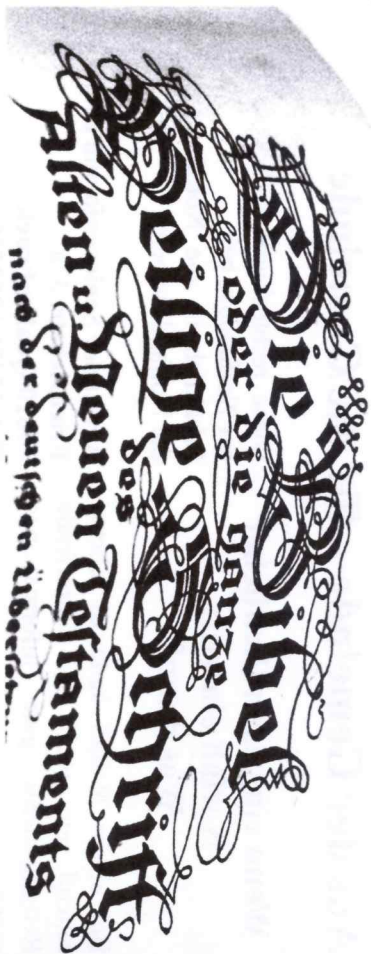 Die Bibel
oder die ganze
Heilige Schrift
des
Alten u Neuen Testaments
nach der deutschen